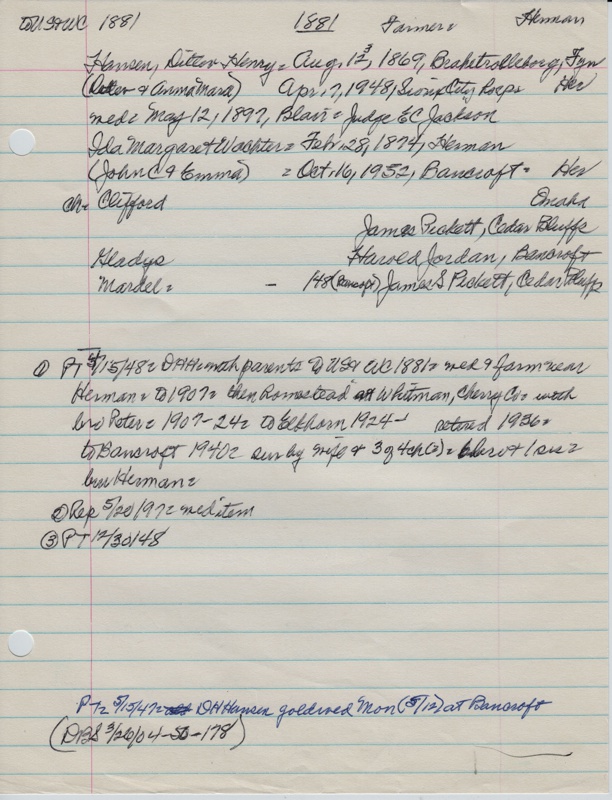 To USA & WC 1881 1881 Farmer= Herman
Hansen, Ditlev Henry= Aug. 1869, Brahetrolleborg, Fyn
(Ditlev & Anna Mara) Apr. 7, 1948, Sioux City Hosps Her
med= May 12, 1897, Blair= Judge EC Jackson
Ida Margaret Wachter= Feb. 28, 1874, Herman
(John C & Emma) = Oct. 16, 1952, Bancroft= Her
ch= Clifford Omaha
James Pickett, Cedar Bluffs
Gladys Harold Jordan, Bancroft
Mardel= - '48 James S Pickett, Cedar Bluffs
① PT 4/15/48= DHH with parents to USA & WC 1881= med & farm near
Herman= to 1907= then homestead at Whitman, Cherry Co= with
bro Peter= 1907-24= to Elkhorn 1924- retired 1936=
to Bancroft 1940= sur by wife & 3 of 4 ch (2)= bro & 1 sis=
bur Herman=
② Rep 5/20/97= med item
③ PT 12/30/48
PT= 5/15/47= DH Hansen gold wed Mon (5/12) at Bancroft
(DBS 3/26/04-SD-178)